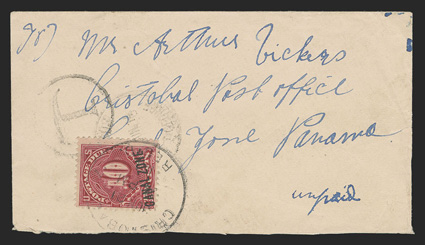 Mr Arthur Vickers
Cristobal Post office
Canal Zone Panama
unpaid
T
POSTAGE DUE
10
CANAL ZONE